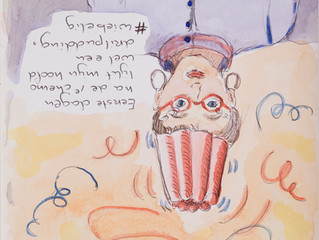 Eerste dagen
na de 1e chemo
lijkt mijn hoofd
wel een
drilpudding.
#wiebelig